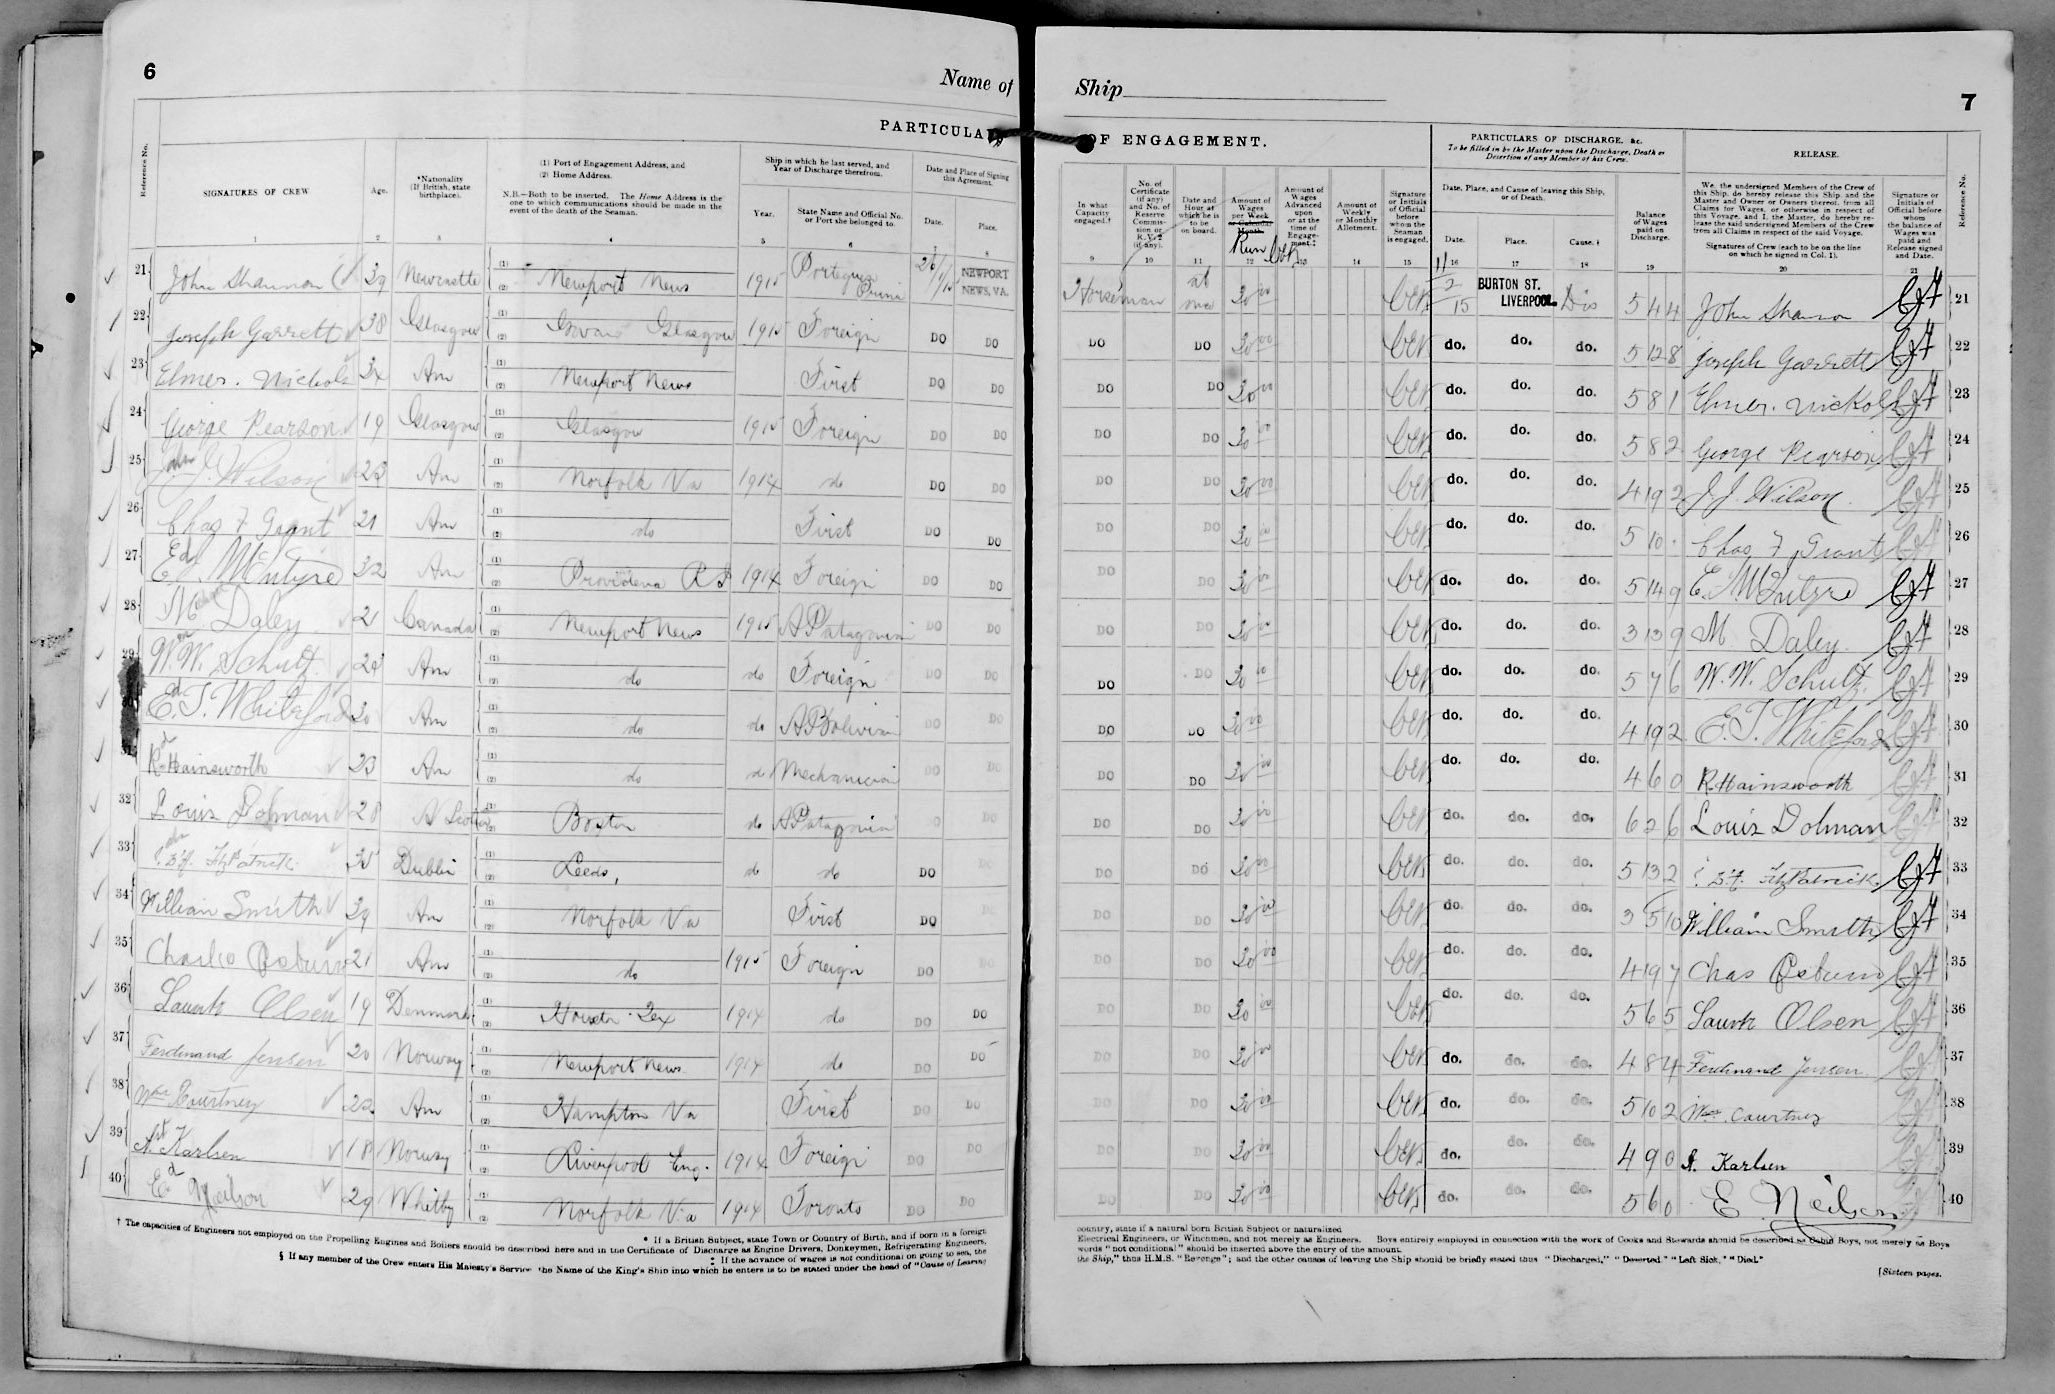 6
Name of
Ship
7
PARTICULA
OF ENGAGEMENT.
PARTICULARS OF DISCHARGE, &c.
To be filled in by the Master upon the Discharge, Death or Desertion of any Member of his Crew.
RELEASE.
Reference No.
SIGNATURES OF CREW
Age.
*Nationality (If British, state birthplace).
(1) Port of Engagement Address, and
(2) Home Address.
N.B.—Both to be inserted. The Home Address is the one to which communications should be made in the event of the death of the Seaman.
Ship in which he last served, and Year of Discharge therefrom.
Year.
State Name and Official No. or Port she belonged to.
Date and Place of Signing this Agreement.
Date.
Place.
In what Capacity engaged.†
No. of Certificate (if any) and No. of Reserve Commission or R.V.2 (if any).
Date and Hour at which he is to be on board.
Amount of Wages per Week or Calendar Month.
Run
Amount of Wages Advanced upon or at the time of Engagement.‡
Amount of Weekly or Monthly Allotment.
Signature or Initials of Official before whom the Seaman is engaged.
Date, Place, and Cause of leaving this Ship, or of Death.
Date.
Place.
Cause.§
Balance of Wages paid on Discharge.
We, the undersigned Members of the Crew of this Ship, do hereby release this Ship, and the Master and Owner or Owners thereof, from all Claims for Wages, or otherwise in respect of this Voyage, and I, the Master, do hereby release the said undersigned Members of the Crew from all Claims in respect of the said Voyage.
Signatures of Crew (each to be on the line on which he signed in Col. 1).
Signature or Initials of Official before whom the balance of Wages was paid and Release signed and Date.
Reference No.
1 2 3 4 5 6 7 8 9 10 11 12 13 14 15 16 17 18 19 20 21
21 John Shannon 39 Newcastle (1) (2) Newport News 1915 26/1/15 NEWPORT NEWS, VA. Horseman at once 20 00 11/2/15 BURTON ST. LIVERPOOL Dis 5 4 4 John Shannon 21
22 Joseph Garrett 38 Glasgow (1) (2) Govan Glasgow 1915 Foreign DO DO DO DO 20 00 do. do. do. 5 12 8 Joseph Garrett 22
23 Elmer. Nichols 34 Am (1) (2) Newport News First DO DO DO DO 20 00 do. do. do. 5 8 1 Elmer. Nichols 23
24 George Pearson 19 Glasgow (1) (2) Glasgow 1915 Foreign DO DO DO DO 20 00 do. do. do. 5 8 2 George Pearson 24
25 J. J. Wilson 23 Am (1) (2) Norfolk Va 1914 do DO DO DO DO 20 00 do. do. do. 4 19 2 J. J. Wilson 25
26 Chas F Grant 21 Am (1) (2) do First DO DO DO DO 20 00 do. do. do. 5 10 . Chas F Grant 26
27 Ed McIntyre 32 Am (1) (2) Providence R I 1914 Foreign DO DO DO DO 20 00 do. do. do. 5 14 9 E. McIntyre 27
28 M Daley 21 Canada (1) (2) Newport News 1915 A Patagonia DO DO DO DO 20 00 do. do. do. 3 13 9 M Daley. 28
29 W. W. Schultz. 28 Am (1) (2) do do Foreign DO DO DO DO 20 00 do. do. do. 5 7 6 W. W. Schultz. 29
30 Ed. T. Whiteford 30 Am (1) (2) do do A Bolivia DO DO DO DO 20 00 do. do. do. 4 19 2 E. T. Whiteford 30
31 Rd Hainsworth 23 Am (1) (2) do do Mechanician DO DO DO DO 20 00 do. do. do. 4 6 0 R. Hainsworth 31
32 Louis Dolman 28 N Scotia (1) (2) Boston do A Patagonia DO DO DO DO 20 00 do. do. do. 6 2 6 Louis Dolman 32
33 FitzPatrick 35 Dublin (1) (2) Leeds, do do DO DO DO DO 20 00 do. do. do. 5 13 2 FitzPatrick. 33
34 William Smith 39 Am (1) (2) Norfolk Va First DO DO DO DO 20 00 do. do. do. 3 5 10 William Smith 34
35 Charles Osburn 21 Am (1) (2) do 1915 Foreign DO DO DO DO 20 00 do. do. do. 4 19 7 Chas Osburn 35
36 Laurits Olsen 19 Denmark (1) (2) Houston Tex 1914 do DO DO DO DO 20 00 do. do. do. 5 6 5 Laurits Olsen 36
37 Ferdinand Jensen 20 Norway (1) (2) Newport News 1914 do DO DO DO DO 20 00 do. do. do. 4 8 4 Ferdinand Jensen 37
38 Wm Courtney 22 Am (1) (2) Hampton Va First DO DO DO DO 20 00 do. do. do. 5 10 2 Wm Courtney 38
39 A. Karlsen 18 Norway (1) (2) Liverpool Eng. 1914 Foreign DO DO DO DO 20 00 do. do. do. 4 9 0 A. Karlsen 39
40 Ed Neilson 29 Whitby (1) (2) Norfolk Va 1914 Toronto DO DO DO DO 20 00 do. do. do. 5 6 0 E. Neilson 40
* If a British Subject, state Town or Country of Birth, and if born in a foreign country, state if a natural born British Subject or naturalized
† The capacities of Engineers not employed on the Propelling Engines and Boilers should be described here and in the Certificate of Discharge as Engine Drivers, Donkeymen, Refrigerating Engineers, Electrical Engineers, or Winchmen, and not merely as Engineers. Boys entirely employed in connection with the work of Cooks and Stewards should be described as Cabin Boys, not merely as Boys
‡ If the advance of wages is not conditional on going to sea, the words "not conditional" should be inserted above the entry of the amount.
§ If any member of the Crew enters His Majesty's Service the Name of the King's Ship into which he enters is to be stated under the head of "Cause of Leaving the Ship," thus H.M.S. "Revenge"; and the other causes of leaving the Ship should be briefly stated thus "Discharged," "Deserted," "Left Sick," "Died."
[Sixteen pages.